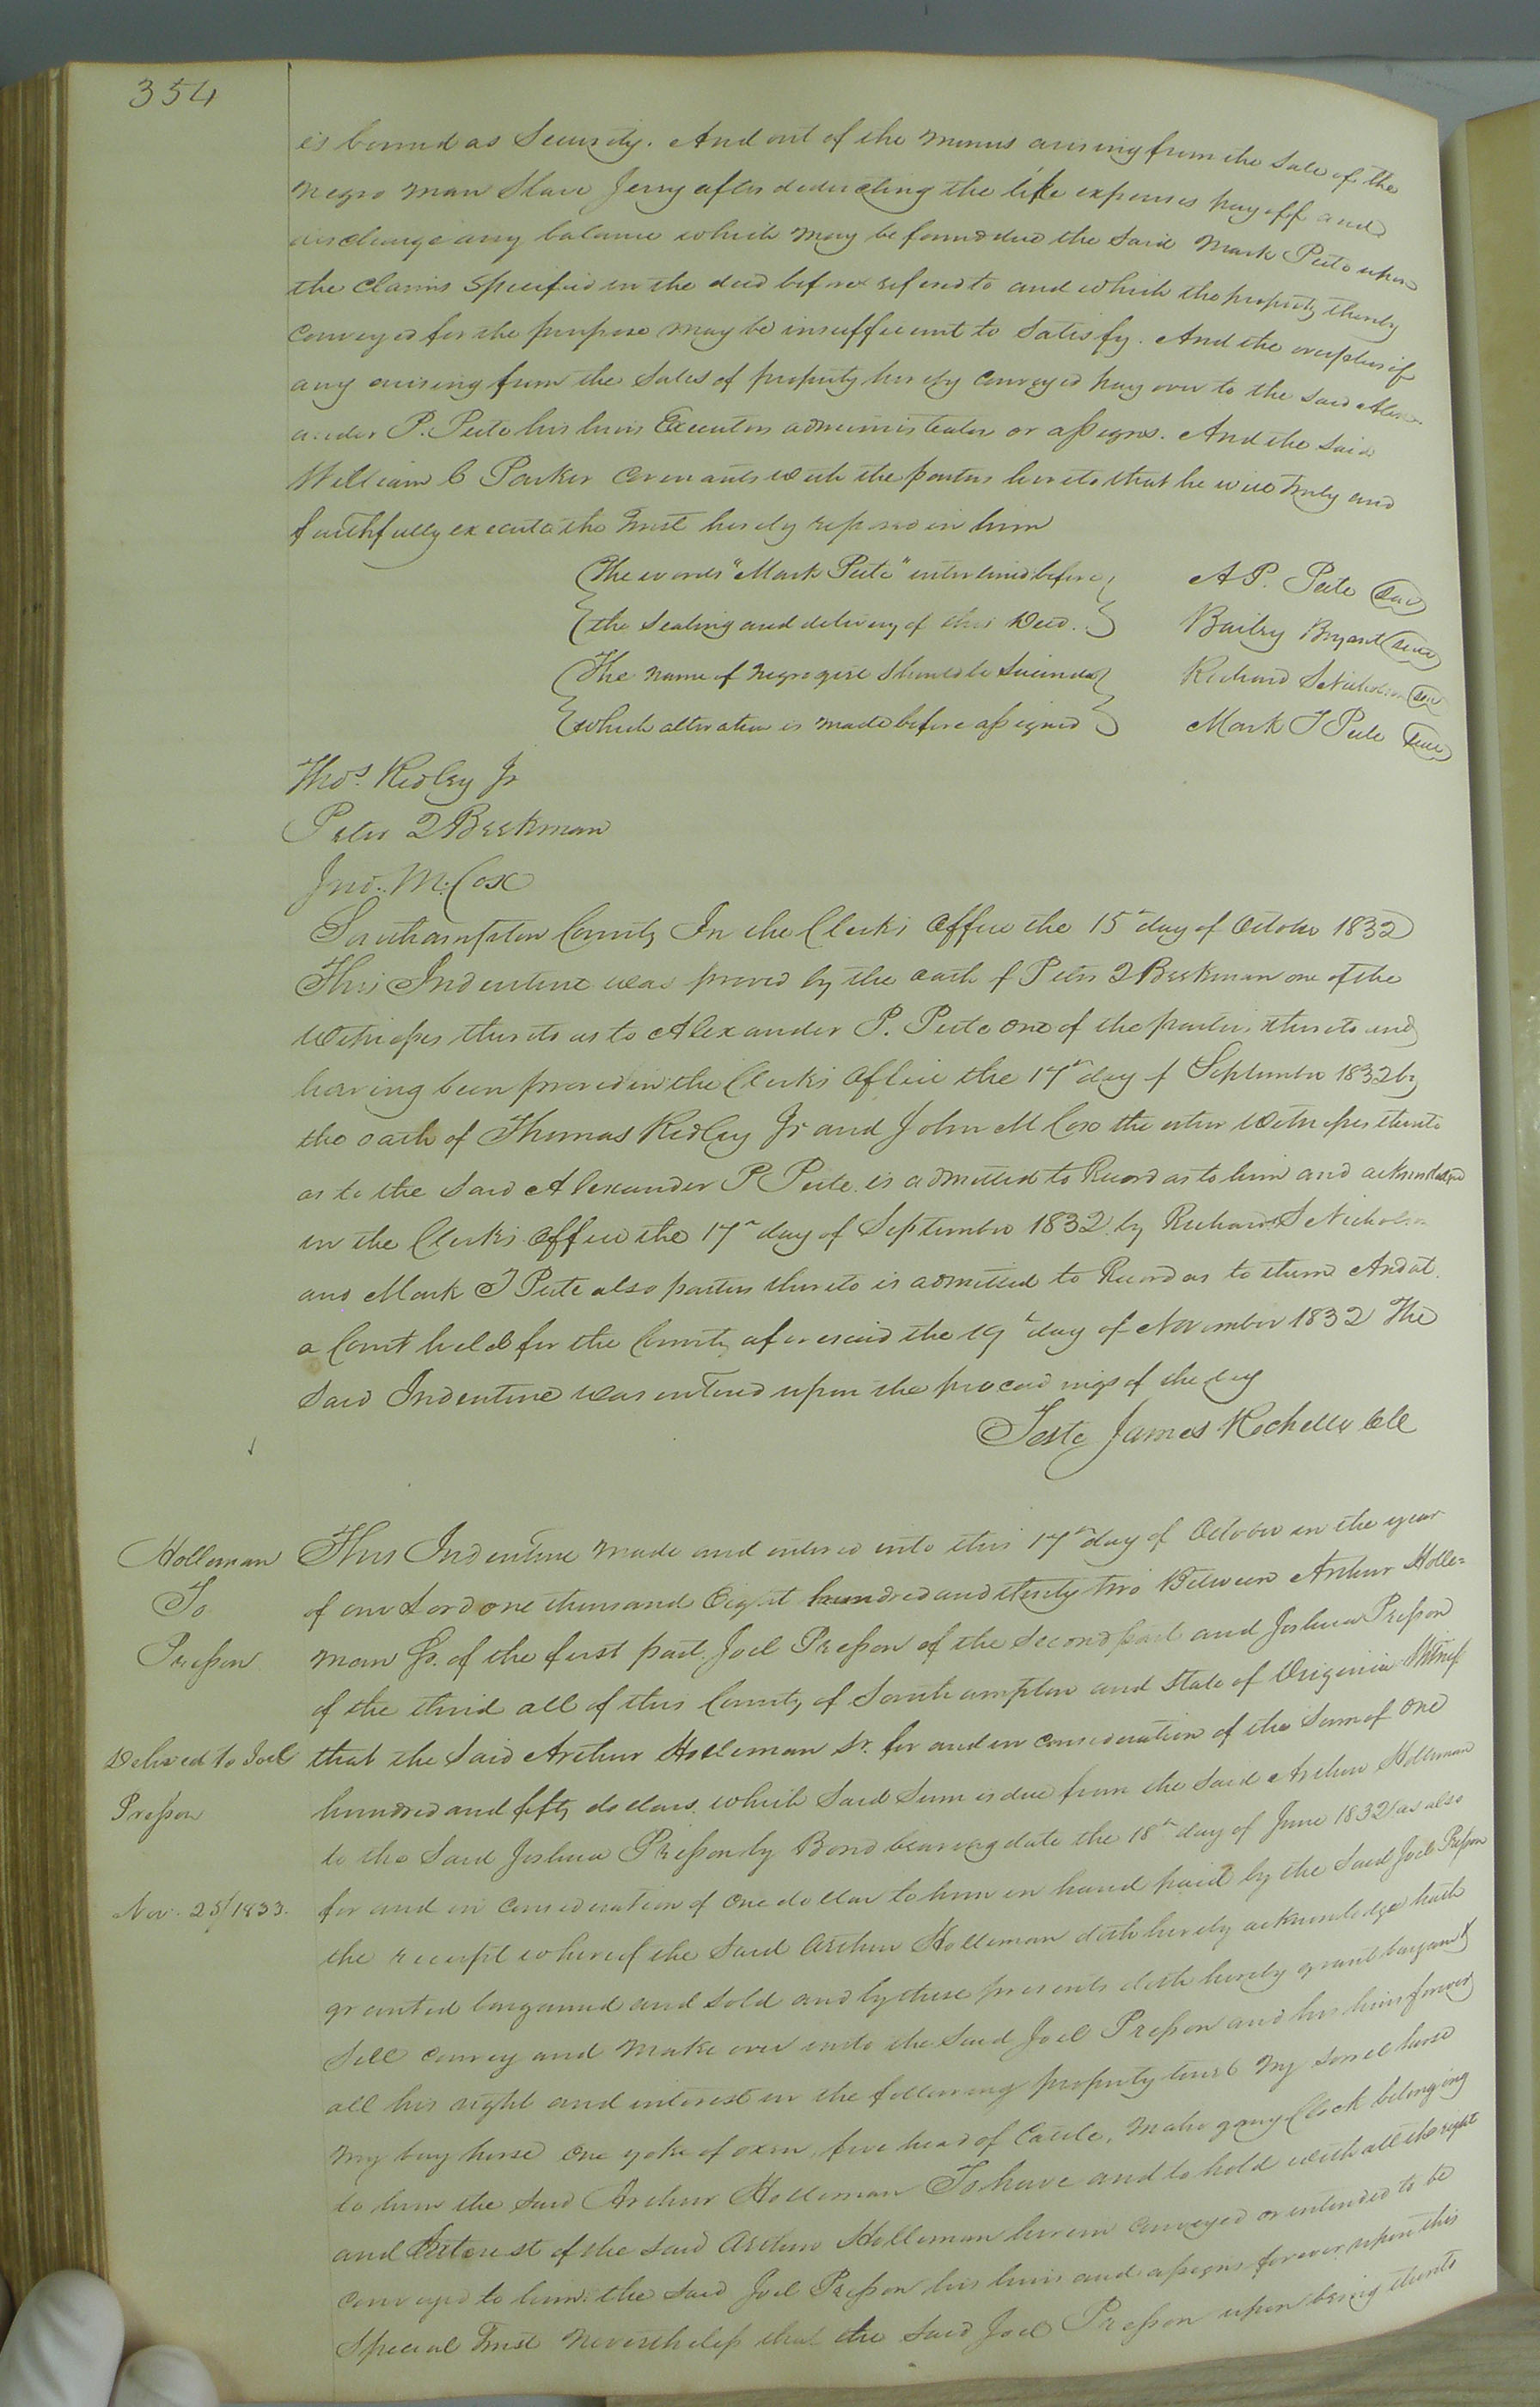 354
is bound as Security. And out of the monies arising from the Sale of the
negro man Slave Jerry after deducting the like expenses pay off and
discharge any balance which may be found due the said Mark Peete upon
the claims specified in the deed before refered to and which the property thereby
conveyed for the purpose may be insufficient to satisfy. And the overplus if
any arising from the Sales of property hereby conveyed pay over to the said Alex-
ander P. Peete his heirs Executors administrators or assigns. And the said
William C Parker Covenants with the parties hereto that he will truly and
faithfully execute the Trust hereby reposed in him
The words "Mark Peete" interlined before
the Sealing and delivery of this Deed.
The name of Negro girl should be Lucinda
which alteration is made before assigned
A P. Peete Seal
Bailey Bryant Seal
Richard S Nicholson Seal
Mark T Peete Seal
Thos. Ridley Jr
Peter 2 Beekman
Jno. M. Cox
Southampton County In the Clerks Office the 15th day of October 1832
This Indenture was proved by the oath of Peter 2 Beekman one of the
Witnesses thereto as to Alexander P. Peete one of the parties thereto and
having been proved in the Clerks Office the 17th day of September 1832 by
the oath of Thomas Ridley Jr and John M Cox the other Witnesses thereto
as to the said Alexander P Peete is admitted to Record as to him and acknowledged
in the Clerks Office the 17th day of September 1832 by Richard S Nicholson
and Mark T Peete also parties thereto is admitted to Record as to them And at
a Court held for the County aforesaid the 19th day of November 1832 The
said Indenture was entered upon the proceedings of the day
Teste James Rochelle CC
Holleman
To
Presson
Delived to Joel
Presson
Nov. 25/1833.
This Indenture made and entered into this 17th day of October in the year
of our Lord one thousand Eight hundred and thirty two Between Arthur Holle=
man Sr. of the first part. Joel Presson of the second part and Joshua Presson
of the third all of this County of Southampton and State of Virginia Witness
that the said Arthur Holleman Sr. for and in consideration of the Sum of one
hundred and fifty dollars which said Sum is due from the said Arthur Holleman
to the said Joshua Presson by Bond bearing date the 18th day of June 1832 as also
for and in consideration of one dollar to him in hand paid by the said Joel Presson
the receipt whereof the said Arthur Holleman doth hereby acknowledge hath
granted bargained and sold and by these presents doth hereby grant bargain &
sell convey and make over unto the said Joel Presson and his heirs forever
all his right and interest in the following property my sorrel horse
my bay horse one yoke of oxen, five head of Cattle, mahogany Clock belonging
to him the said Arthur Holleman To have and to hold with all the right
and Interest of the said Arthur Holleman herein conveyed or intended to be
conveyed to him the said Joel Presson his heirs and assigns forever upon this
special Trust Nevertheless that the said Joel Presson upon being thereto